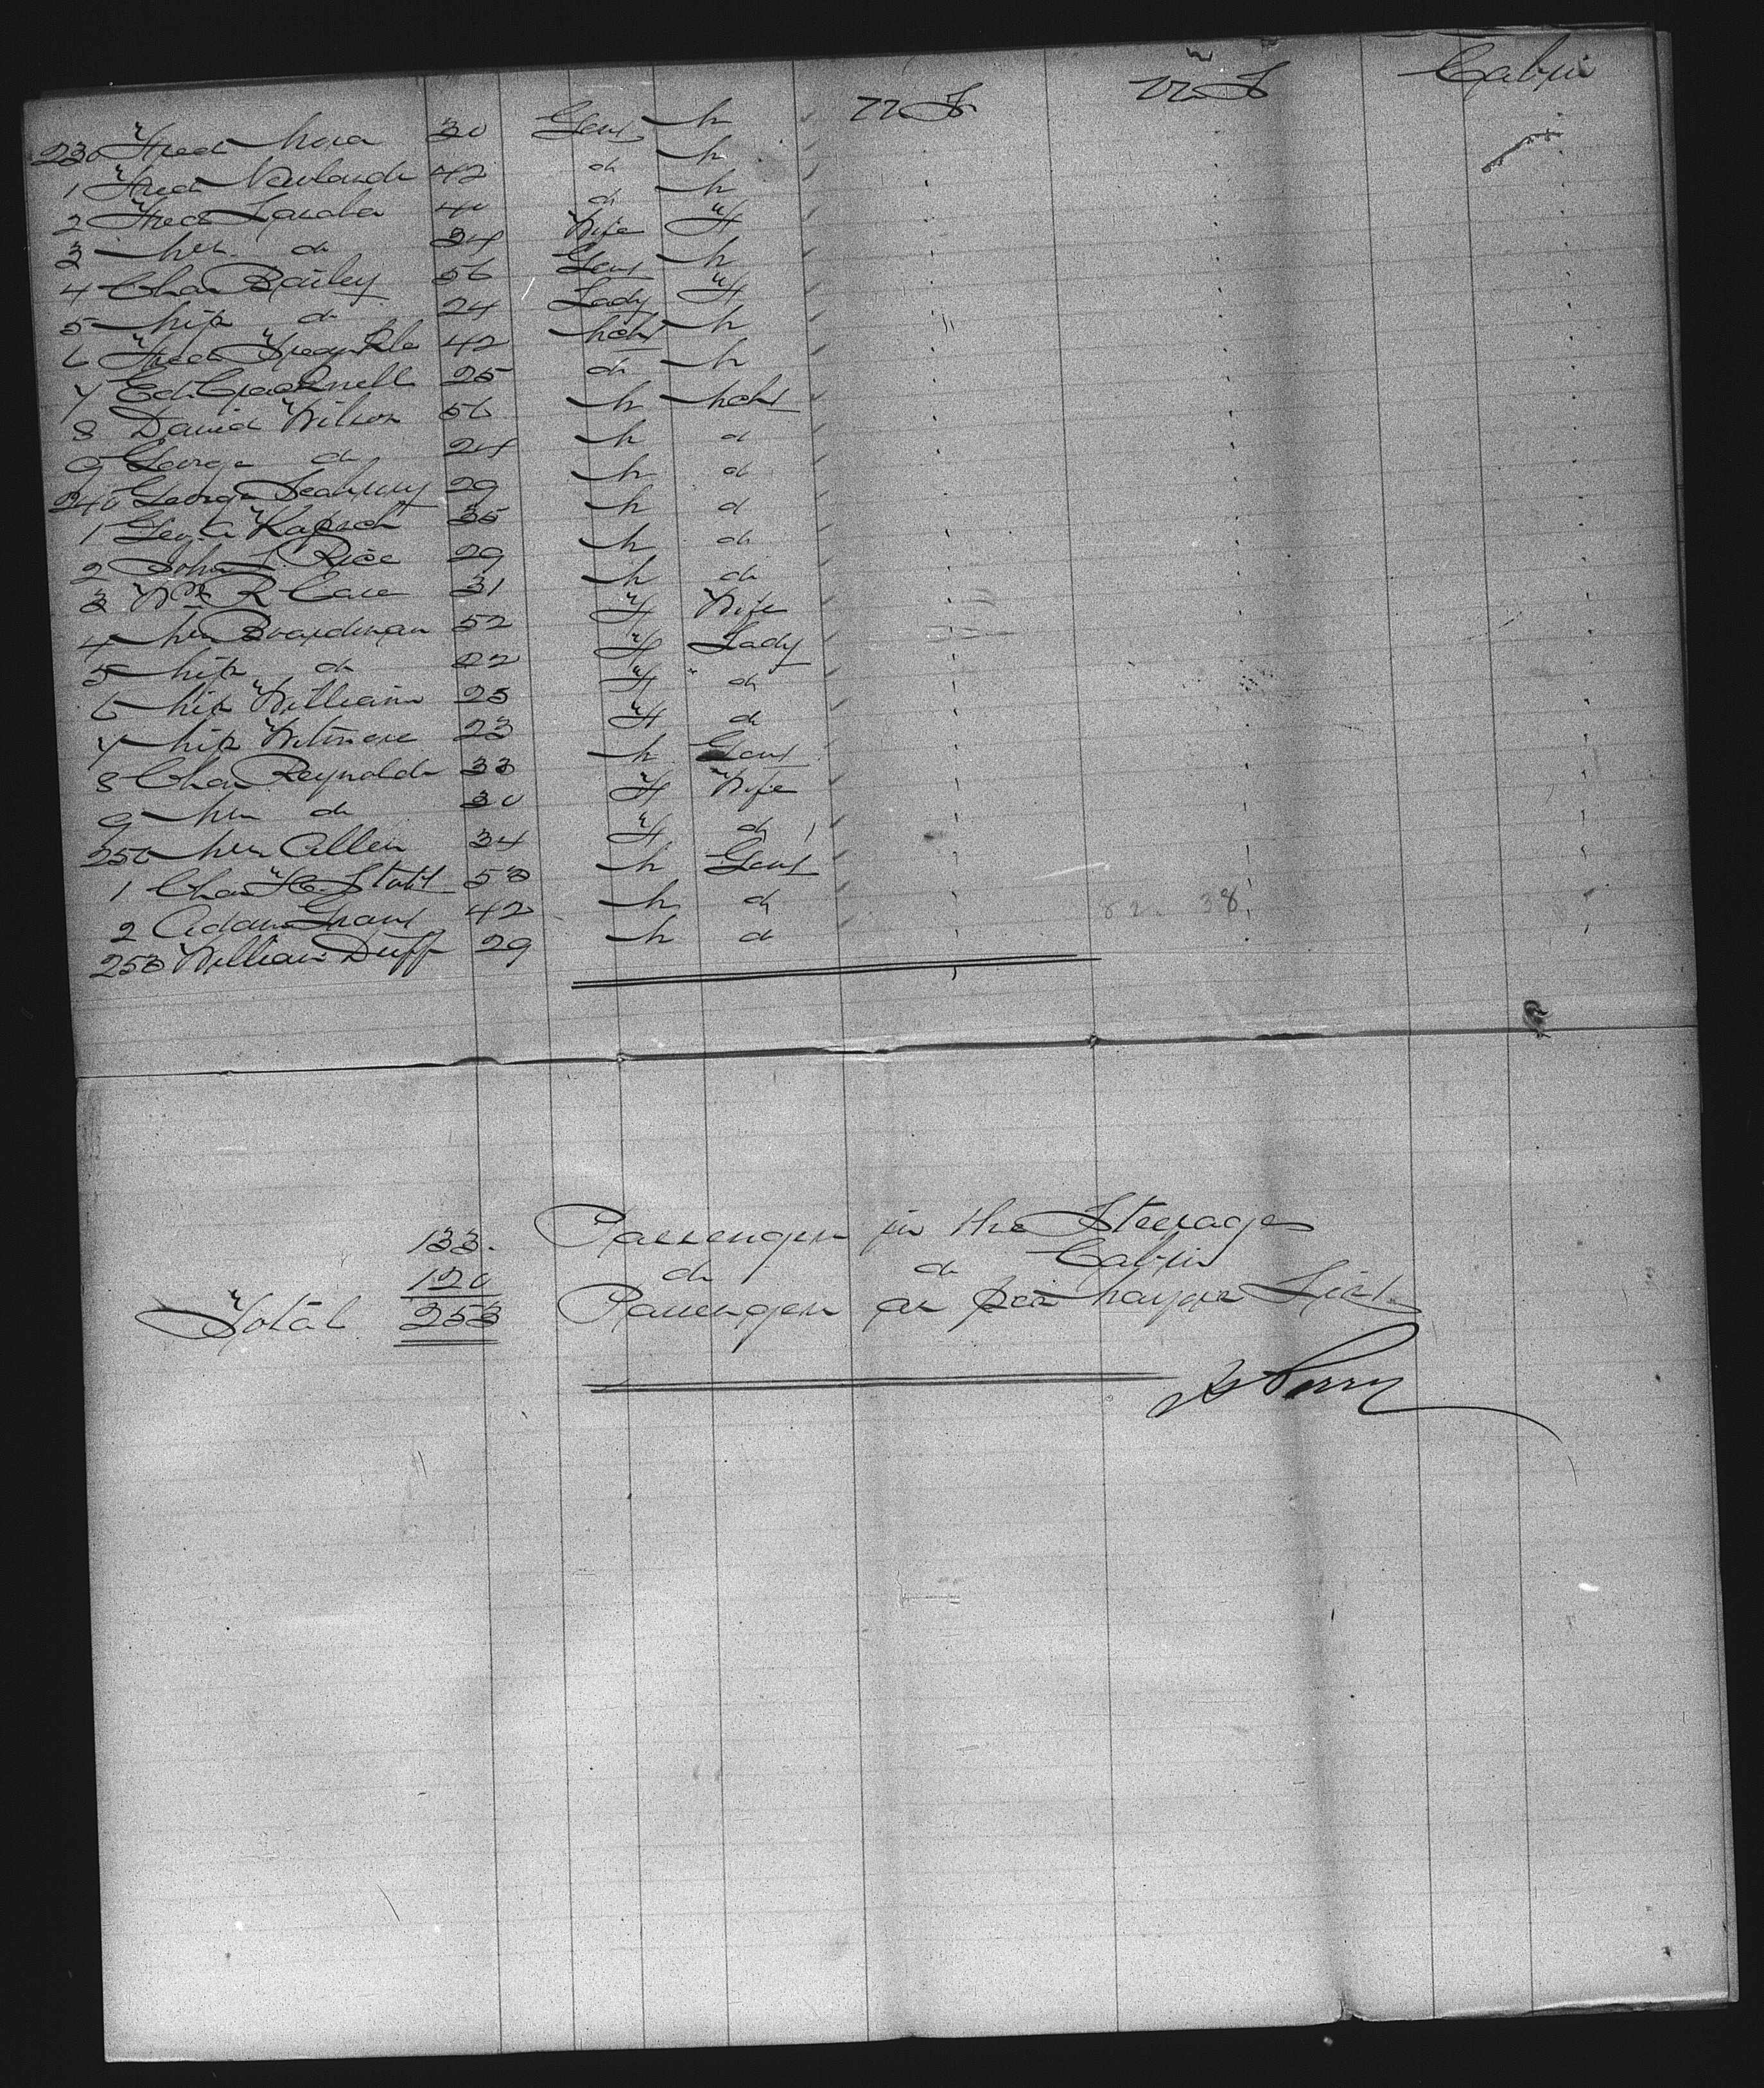 230 Fred Mora 30 Gent M U S U S Cabin
1 Fred Newlands 42 do M
2 Fred Laroha 40 do M
3 Mrs do 34 Wife F
4 Chas Bailey 56 Gent M
5 Miss do 24 Lady F
6 Fred 42 Mcht M
7 Ed Cracknell 25 do M
8 David Wilson 56 M Mcht
9 George do 24 M do
240 George Seabury 29 M do
1 Geo. A 35 M do
2 John L. Rice 29 M do
3 Wm R Case 31 M do
4 Mrs Boardman 52 F Wife
5 Miss do 22 F Lady
6 Miss William 25 F do
7 Miss Wetmore 23 F do
8 Chas Reynolds 33 M Gent
9 Mrs do 30 F Wife
250 Mrs Allen 34 F do
1 Chas H. Stott 53 M Gent
2 Adam Grant 42 M do 38
253 William Duff 29 M do
133. Passengers in the Steerage
120 do do Cabin
Total 253 Passengers as per List
Perry